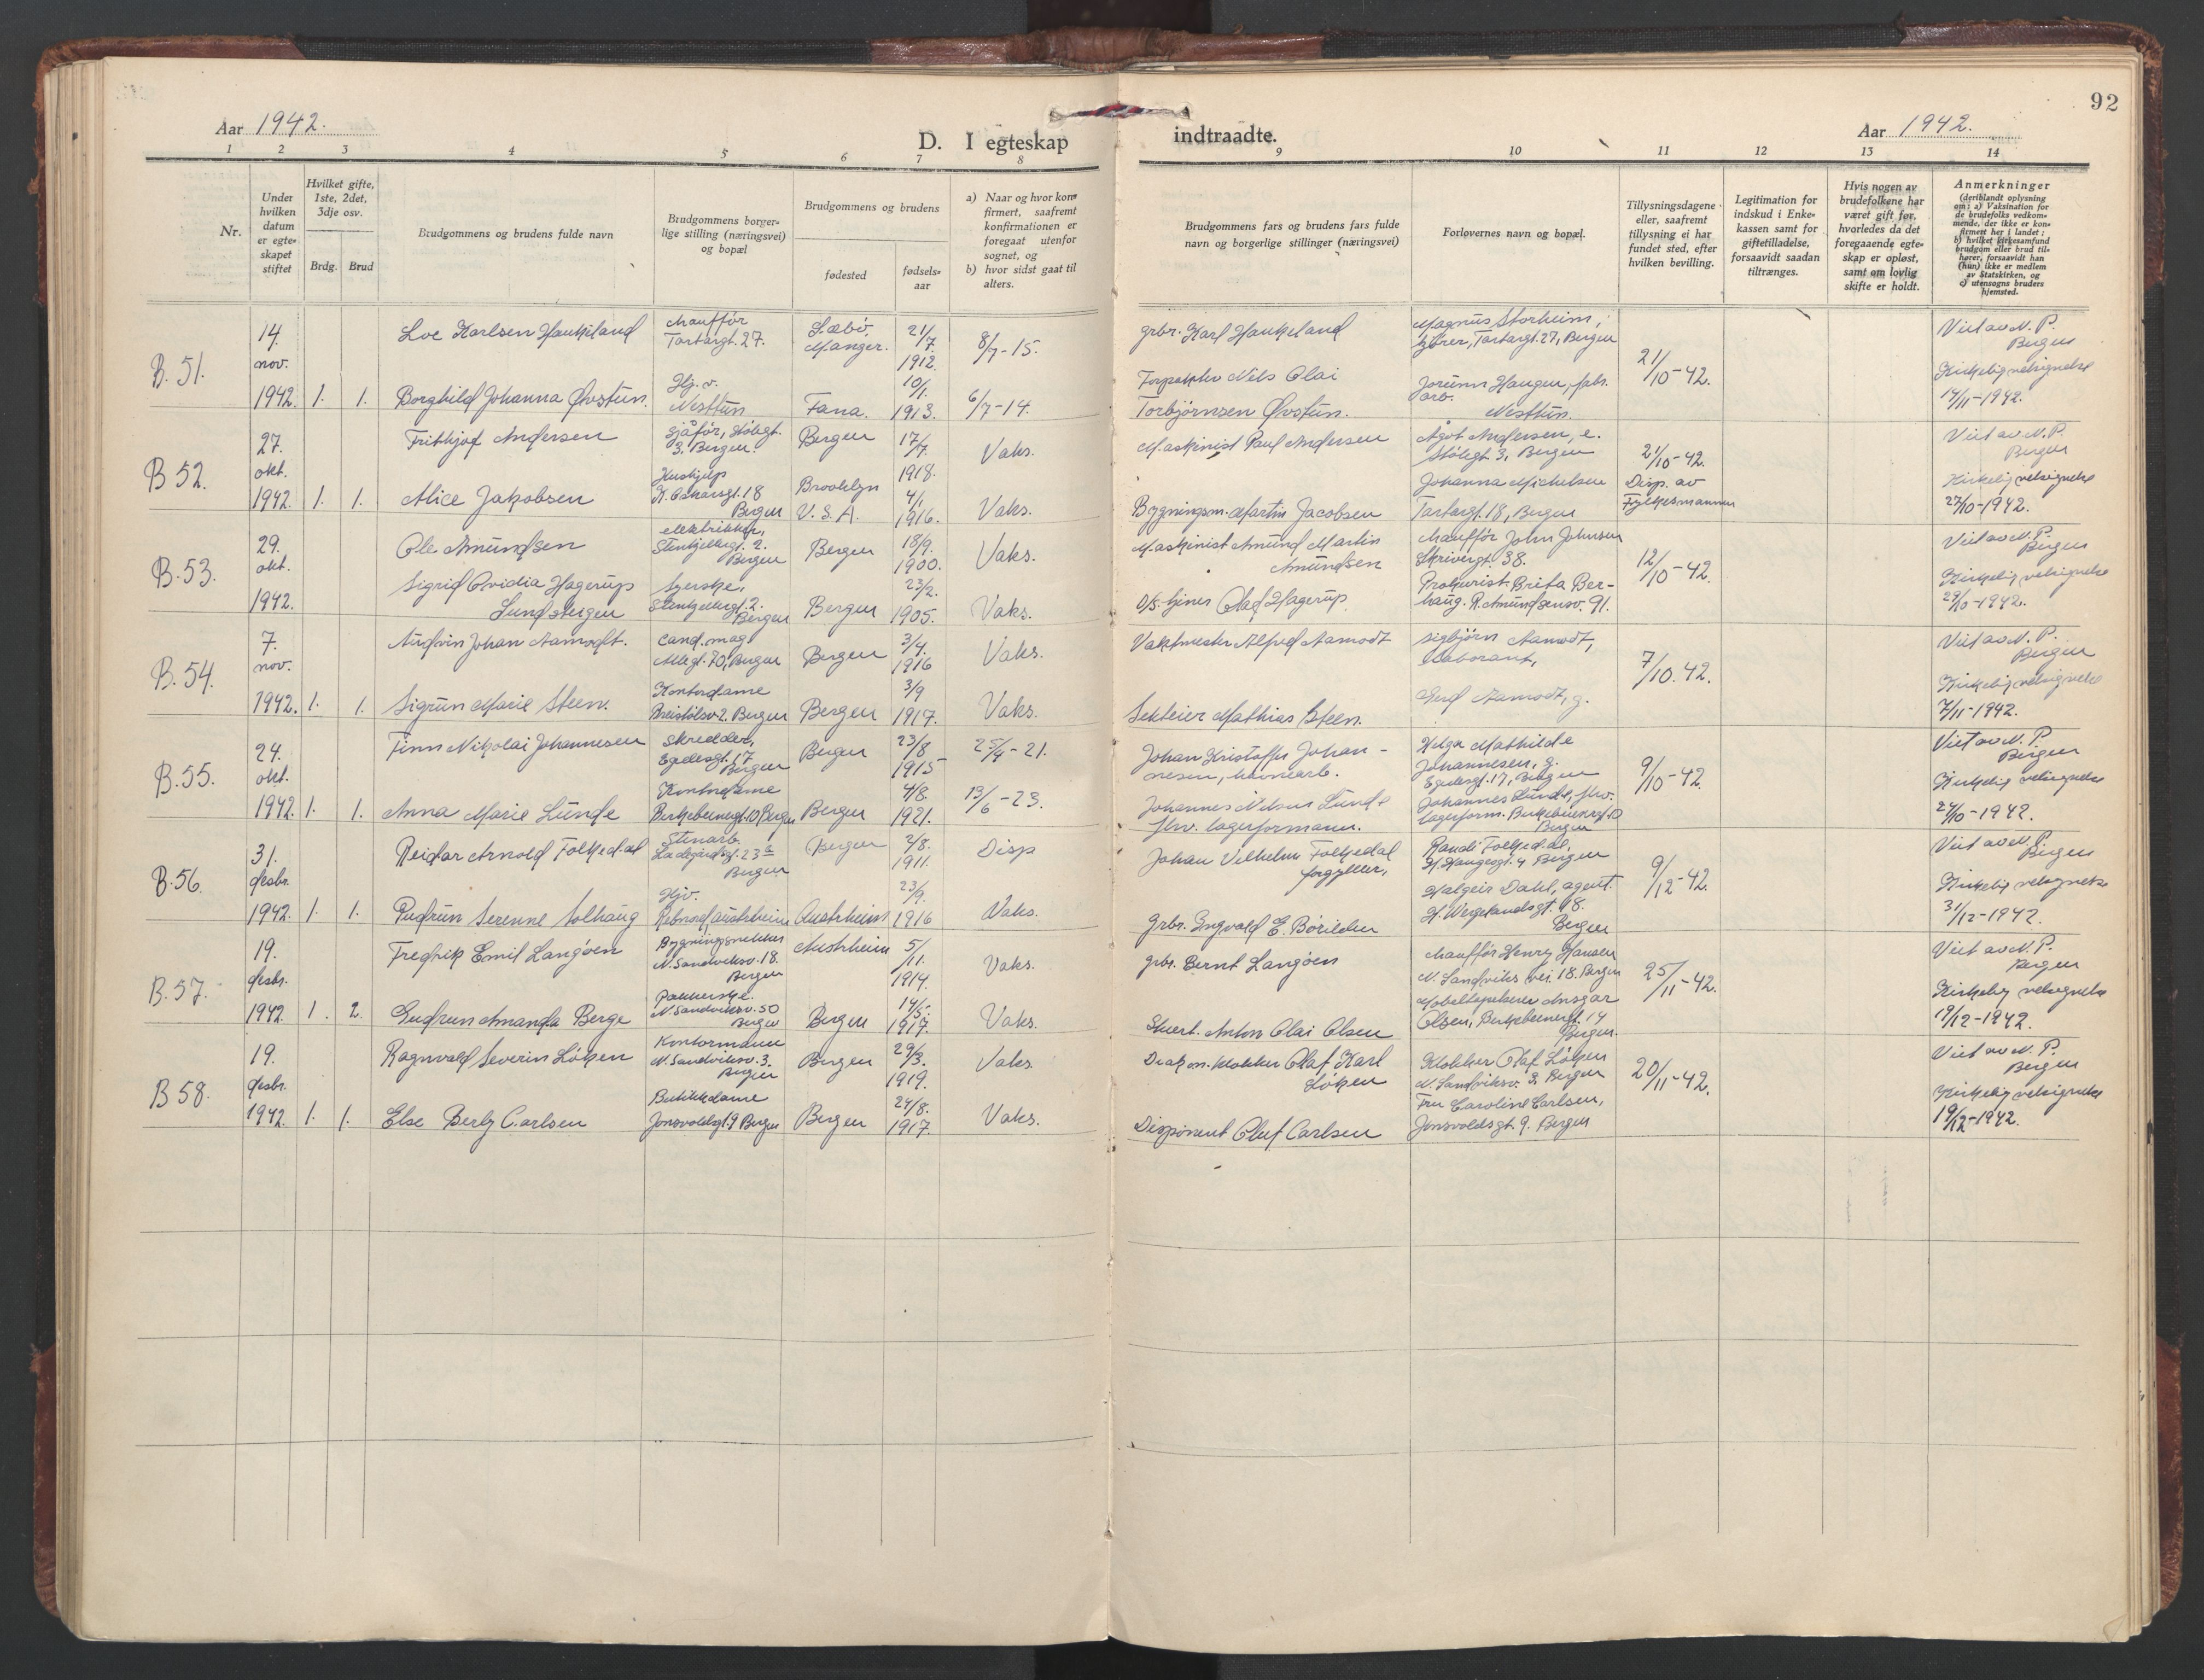 92
Aar 1942.
D. I egteskap
indtraadte.
Aar 1942.
1 2 3 4 5 6 7 8 9 10 11 12 13 14
Nr.
Under
hvilken
datum
er egte-
skapet
stiftet
Hvilket gifte,
1ste, 2det,
3dje osv.
Brdg. Brud
Brudgommens og brudens fulde navn
Brudgommens borger-
lige stilling (næringsvei)
og bopæl
Brudgommens og brudens
fødested
fødsels-
aar
a) Naar og hvor kon-
firmert, saafremt
konfirmationen er
foregaat utenfor
sognet, og
b) hvor sidst gaat til
alters.
Brudgommens fars og brudens fars fulde
navn og borgerlige stillinger (næringsvei)
Forlovernes navn og bopæl.
Tillysningsdagene
eller, saafremt
tillysning ei har
fundet sted, efter
hvilken bevilling.
Legitimation for
indskud i Enke-
kassen samt for
giftetilladelse,
forsaavidt saadan
tiltrænges.
Hvis nogen av
brudefolkene har
været gift før,
hvorledes da det
foregaaende egte-
skap er opløst,
samt om lovlig
skifte er holdt.
Anmerkninger
(deriblandt oplysning
om: a) Vaksination for
de brudefolks vedkom-
mende, der ikke er kon-
firmert her i landet;
b) hvilket kirkesamfund
brudgom eller brud til-
hører, forsaavidt han
(hun) ikke er medlem
av Statskirken, og
c) utensogns bruders
hjemsted.
B. 51.
14.
nov.
1942. 1. 1.
Loe Karlsen Haukeland
chauffør
Tartargt. 27.
Sæbø
Manger.
21/7.
1912.
8/7-15.
grbr. Karl Haukeland
Magnus Storheim,
kjører, Tartargt. 27, Bergen
21/10-42.
Viet av N. P.
Bergen
Borghild Johanna Øvstun.
Hj. v.
Nesttun
Fana.
10/1.
1913.
6/7-14.
Nils Olai
Torbjørnsen Øvstun.
Jorunn Haugen, fabr.
arb.
Nesttun.
Kirkelig velsignelse
14/11-1942.
B 52.
27.
okt.
1942. 1. 1.
Frithjof Andersen
sjåfør, Stølegt.
3. Bergen.
Bergen
17/7.
1918.
Vaks.
Maskinist Paul Andersen
Ågot Andersen, e.
Stølegt 3, Bergen
21/10-42.
Disp. av
Fylkesmannen
Viet av N. P.
Bergen
Alice Jakobsen
Hushjelp
K. Oskarsgt. 18
Bergen
Brooklyn
U. S. A.
4/1.
1916.
Vaks.
Bygningsm. Martin Jacobsen
Johanna Michelsen
Tartargt. 18, Bergen
Kirkelig velsignelse
27/10-1942.
B. 53.
29.
okt.
1942.
Ole Amundsen
elektriker,
Stenkjellergt. 2.
Bergen
Bergen
18/9.
1900.
Vaks.
Maskinist Amund Martin
Amundsen
chauffør John Johnsen
Skrivergt. 38.
12/10-42.
Viet av N. P.
Bergen
Sigrid Ovidia Hagerup
Sundsbergen
Syerske,
Stenkjellergt. 2.
Bergen
Bergen
23/2.
1905.
Vaks.
D/S. tjener Olaf Hagerup.
Prokurist Brita Ber-
haug. R. Amundsensv. 91.
Kirkelig velsignelse
29/10-1942.
B. 54.
7.
nov.
1942. 1. 1.
Audvin Johan Aamodt.
cand. mag
Allegt. 70, Bergen
Bergen
3/4.
1916
Vaks.
Vaktmester Alfred Aamodt
Sigbjørn Aamodt,
laborant,
7/10. 42.
Viet av N. P.
Bergen
Sigrun Marie Steen.
Kontordame
Breistølsv. 2. Bergen
Bergen
3/9
1917.
Vaks.
Mathias Steen.
Gerd Aamodt, g.
Kirkelig velsignelse
7/11-1942.
B. 55.
24.
okt.
1942. 1. 1.
Finn Nikolai Johannesen
Skredder,
Egedesgt. 17
Bergen
Bergen
23/8
1915
25/4-21.
Johan Kristoffer Johan-
nesen, havnearb.
Helga Mathilde
Johannesen, g.
Egedesgt. 17, Bergen
9/10-42.
Viet av N. P.
Bergen
Anna Marie Lunde
Kontordame
Birkebeinergt. 10 Bergen
Bergen
4/8.
1921.
13/6-23.
Johannes Nilsen Lunde
fhv. lagerformann.
Johannes Lunde, fhv.
lagerform. Birkebeinergt. 10
Bergen
Kirkelig velsignelse
24/10-1942.
B. 56.
31.
desbr.
1942. 1. 1.
Reidar Arnold Folkedal
Stenarb.
Ladegårdsgt. 23a
Bergen
Bergen
2/8.
1911.
Disp
Johan Vilhelm Folkedal
forgyller,
Randi Folkedal,
H. Haugesgt. 4 Bergen
9/12-42.
Viet av N. P.
Bergen
Gudrun Serenne Solhaug
Hjv.
Rebnord, Austrheim
Austrheim
23/9.
1916
Vaks.
Grbr. Ingvald E. Børilden
Halgeir Dahl, agent.
H. Wergelandsgt. 18.
Bergen
Kirkelig velsignelse
31/12-1942.
B. 57.
19.
desbr.
1942 1. 2.
Fredrik Emil Langøen
Bygningssnekker
N. Sandviksv. 18.
Bergen
Austrheim
5/11.
1914.
Vaks.
grbr. Bernt Langøen
chauffør Henry Hansen
N. Sandviks vei. 18. Bergen
25/11-42.
Viet av N. P.
Bergen
Gudrun Amanda Berge
Pakkerske.
N. Sandviksv. 50
Bergen
Bergen
14/5.
1917.
Vaks.
Stuert. Anton Olai Olsen
Møbeltapetserer Ansgar
Olsen, Birkebeinergt. 14
Bergen.
Kirkelig velsignelse
19/12-1942.
B 58.
19.
desbr.
1942. 1. 1.
Ragnvald Severin Løken
Kontormann
N. Sandviksv. 3.
Bergen
Bergen
29/3.
1919.
Vaks.
Diakon. klokker Olaf Karl
Løken
Klokker Olaf Løken
N. Sandviksv. 3. Bergen
20/11-42.
Viet av N. P.
Bergen
Else Berly Carlsen
Butikkdame
Jonsvoldsgt. 9 Bergen
Bergen
24/8.
1917.
Vaks.
Disponent Oluf Carlsen
Fru Caroline Carlsen,
Jonsvoldsgt. 9. Bergen
Kirkelig velsignelse
19/12-1942.